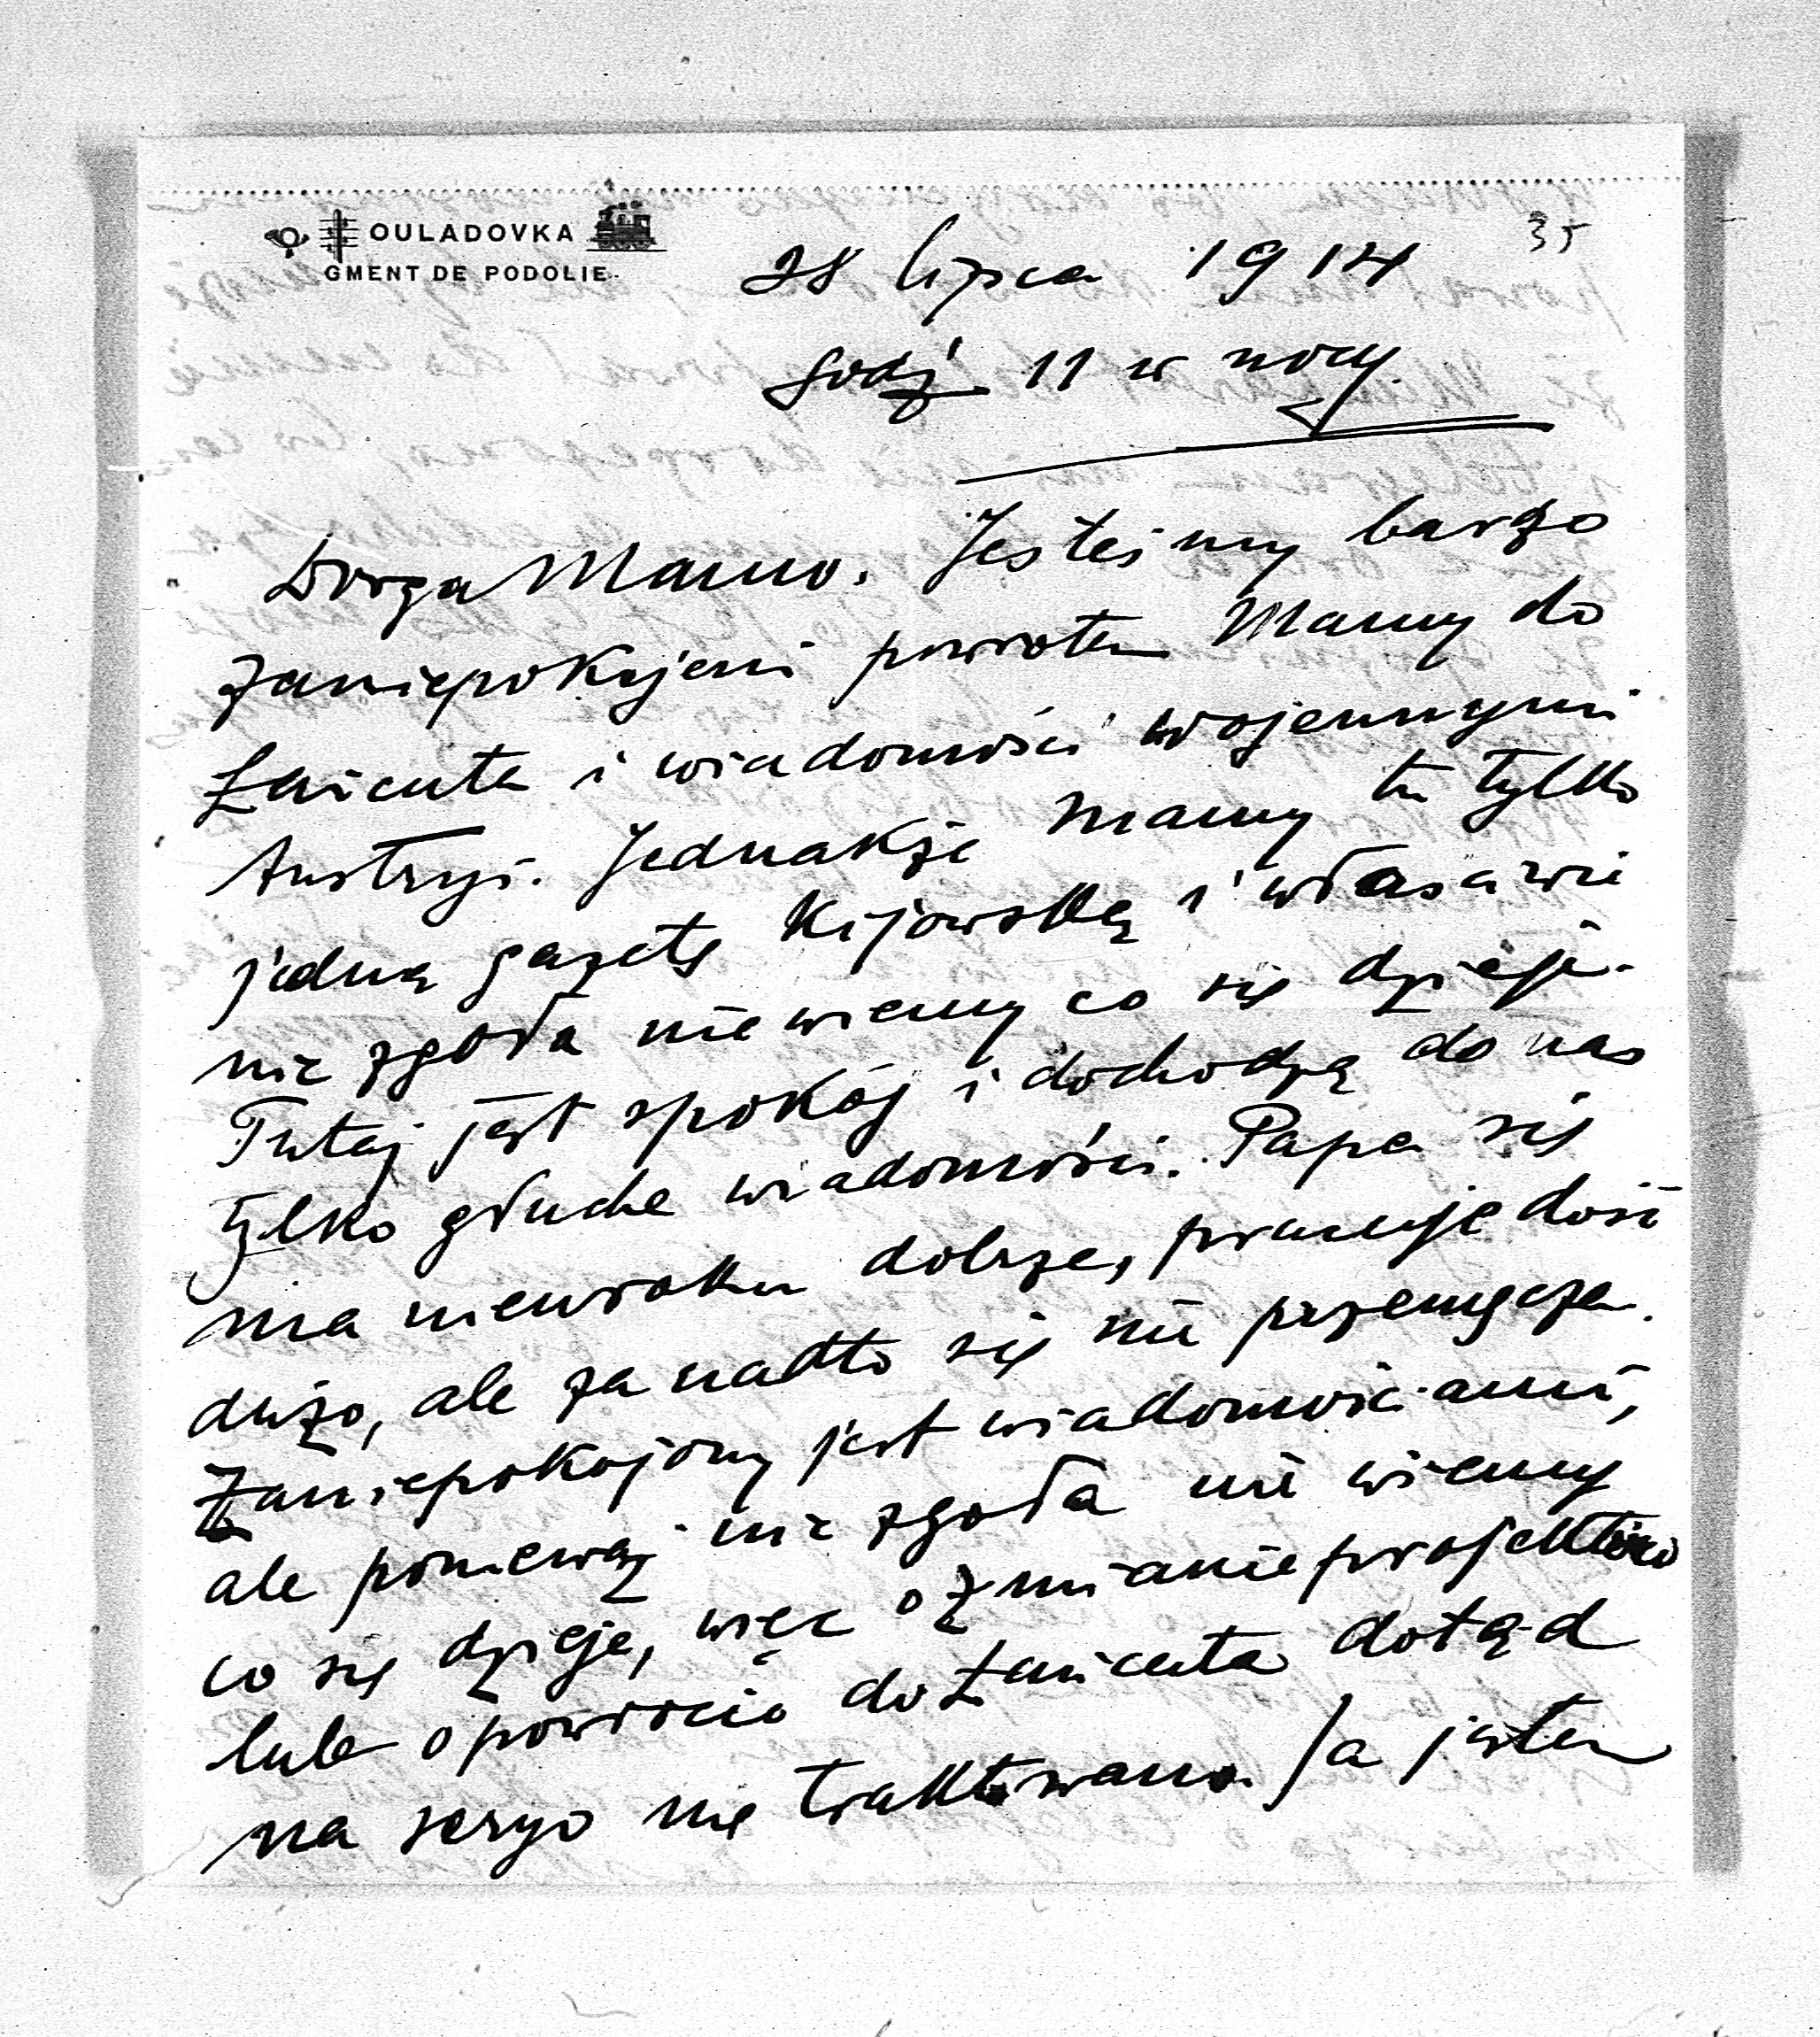 OULADOVKA
GMENT DE PODOLIE
35
28 lipca 1914
godz 11 w nocy.
Droga Mamo. Jesteśmy barzo
zaniepokojeni powrotem Mamy do
Łańcuta i wiadomości wojennymi
Austryi. Jednakże mamy tu tylko
jedną gazetę Kijowską i właściwie
nic zgoła nie wiemy co się dzieje.
Tutaj jest spokój i dochodzą do nas
tylko głuche wiadomości. Papa się
ma nieuroku dobrze, pracuje dość
dużo, ale za nadto się nie przemęcza.
Zaniepokojony jest wiadomościami,
ale ponieważ nic zgoła nie wiemy
co się dzieje, więc o zmianie projektów
lub o powrocie do Łańcuta dotąd
na seryo nie traktowano. Ja jestem